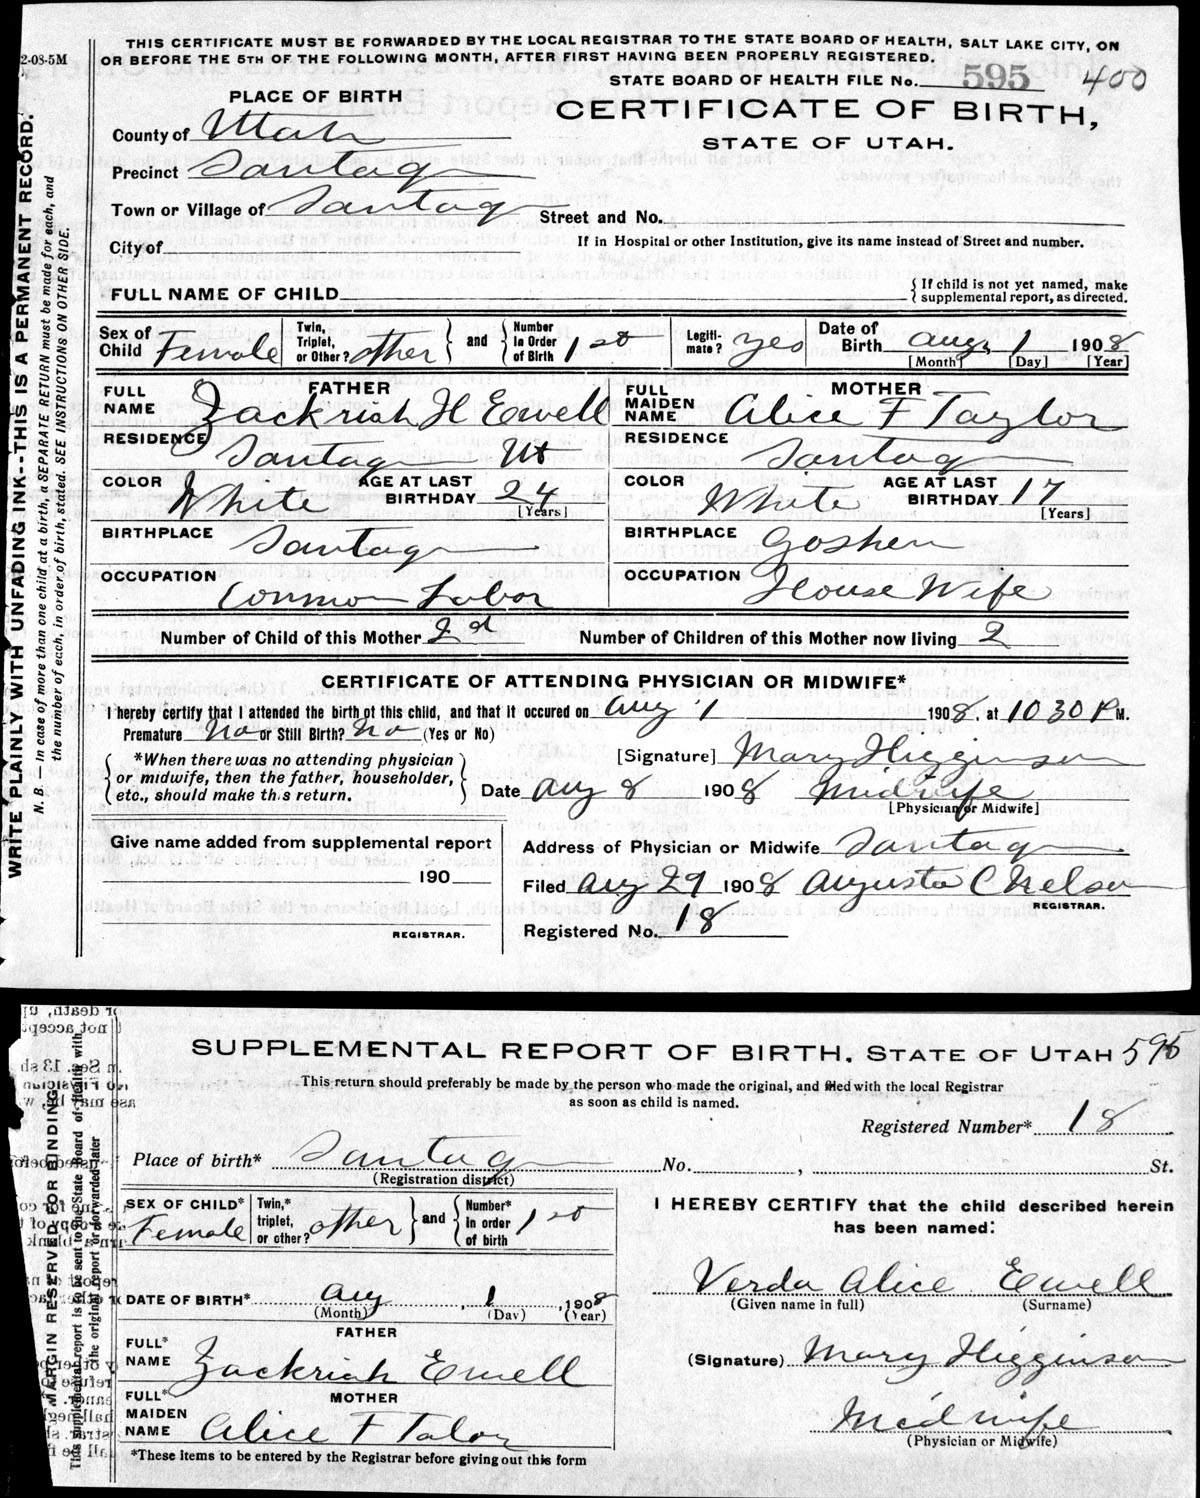 THIS CERTIFICATE MUST BE FORWARDED BY THE LOCAL REGISTRAR TO THE STATE BOARD OF HEALTH, SALT LAKE CITY, ON
OR BEFORE THE 5TH OF THE FOLLOWING MONTH, AFTER FIRST HAVING BEEN PROPERLY REGISTERED.
2-08-5M
STATE BOARD OF HEALTH FILE No. 595 400
PLACE OF BIRTH
CERTIFICATE OF BIRTH,
STATE OF UTAH.
County of Utah
Precinct Santaq
Town or Village of Santaq Street and No.
City of
If in Hospital or other Institution, give its name instead of Street and number.
FULL NAME OF CHILD
{If child is not yet named, make
supplemental report, as directed.
Sex of Child Female Twin, Triplet, or Other? other } and { Number In Order of Birth 1st Legiti-mate? yes Date of Birth Aug. 1 1908
[Month] [Day] [Year]
FATHER
FULL NAME Zackriah H Ewell
MOTHER
FULL MAIDEN NAME Alice F Taylor
RESIDENCE Santaq Ut
RESIDENCE Santaq
COLOR White AGE AT LAST BIRTHDAY 24 [Years]
COLOR White AGE AT LAST BIRTHDAY 17 [Years]
BIRTHPLACE Santaq
BIRTHPLACE Goshen
OCCUPATION Common Labor
OCCUPATION House Wife
Number of Child of this Mother 2d Number of Children of this Mother now living 2
CERTIFICATE OF ATTENDING PHYSICIAN OR MIDWIFE*
I hereby certify that I attended the birth of this child, and that it occured on Aug 1 1908, at 10 30 P M.
Premature No or Still Birth? No (Yes or No)
*When there was no attending physician
or midwife, then the father, householder,
etc., should make this return.
[Signature] Mary Higginson
Date Aug 8 1908 Midwife
[Physician or Midwife]
Give name added from supplemental report
190
REGISTRAR.
Address of Physician or Midwife Santaq
Filed Aug 29 1908 Augusta C Nelson
REGISTRAR.
Registered No. 18
WRITE PLAINLY WITH UNFADING INK---THIS IS A PERMANENT RECORD.
N. B. — In case of more than one child at a birth, a SEPARATE RETURN must be made for each, and
the number of each, in order of birth, stated. SEE INSTRUCTIONS ON OTHER SIDE.
SUPPLEMENTAL REPORT OF BIRTH, STATE OF UTAH 595
This return should preferably be made by the person who made the original, and filed with the local Registrar
as soon as child is named.
Registered Number* 18
Place of birth* Santaq No. , St.
(Registration district)
SEX OF CHILD* Female Twin,* triplet, or other? other } and { Number* in order of birth 1st
DATE OF BIRTH* Aug , 1 , 1908
(Month) (Day) (Year)
FATHER
FULL* NAME Zackriah Ewell
MOTHER
FULL* MAIDEN NAME Alice F Talor
*These items to be entered by the Registrar before giving out this form
I HEREBY CERTIFY that the child described herein
has been named:
Verda Alice Ewell
(Given name in full) (Surname)
(Signature) Mary Higginson
Midwife
(Physician or Midwife)
MARGIN RESERVED FOR BINDING
This supplemental report is to be sent to the State Board of Health with
the original report or forwarded later